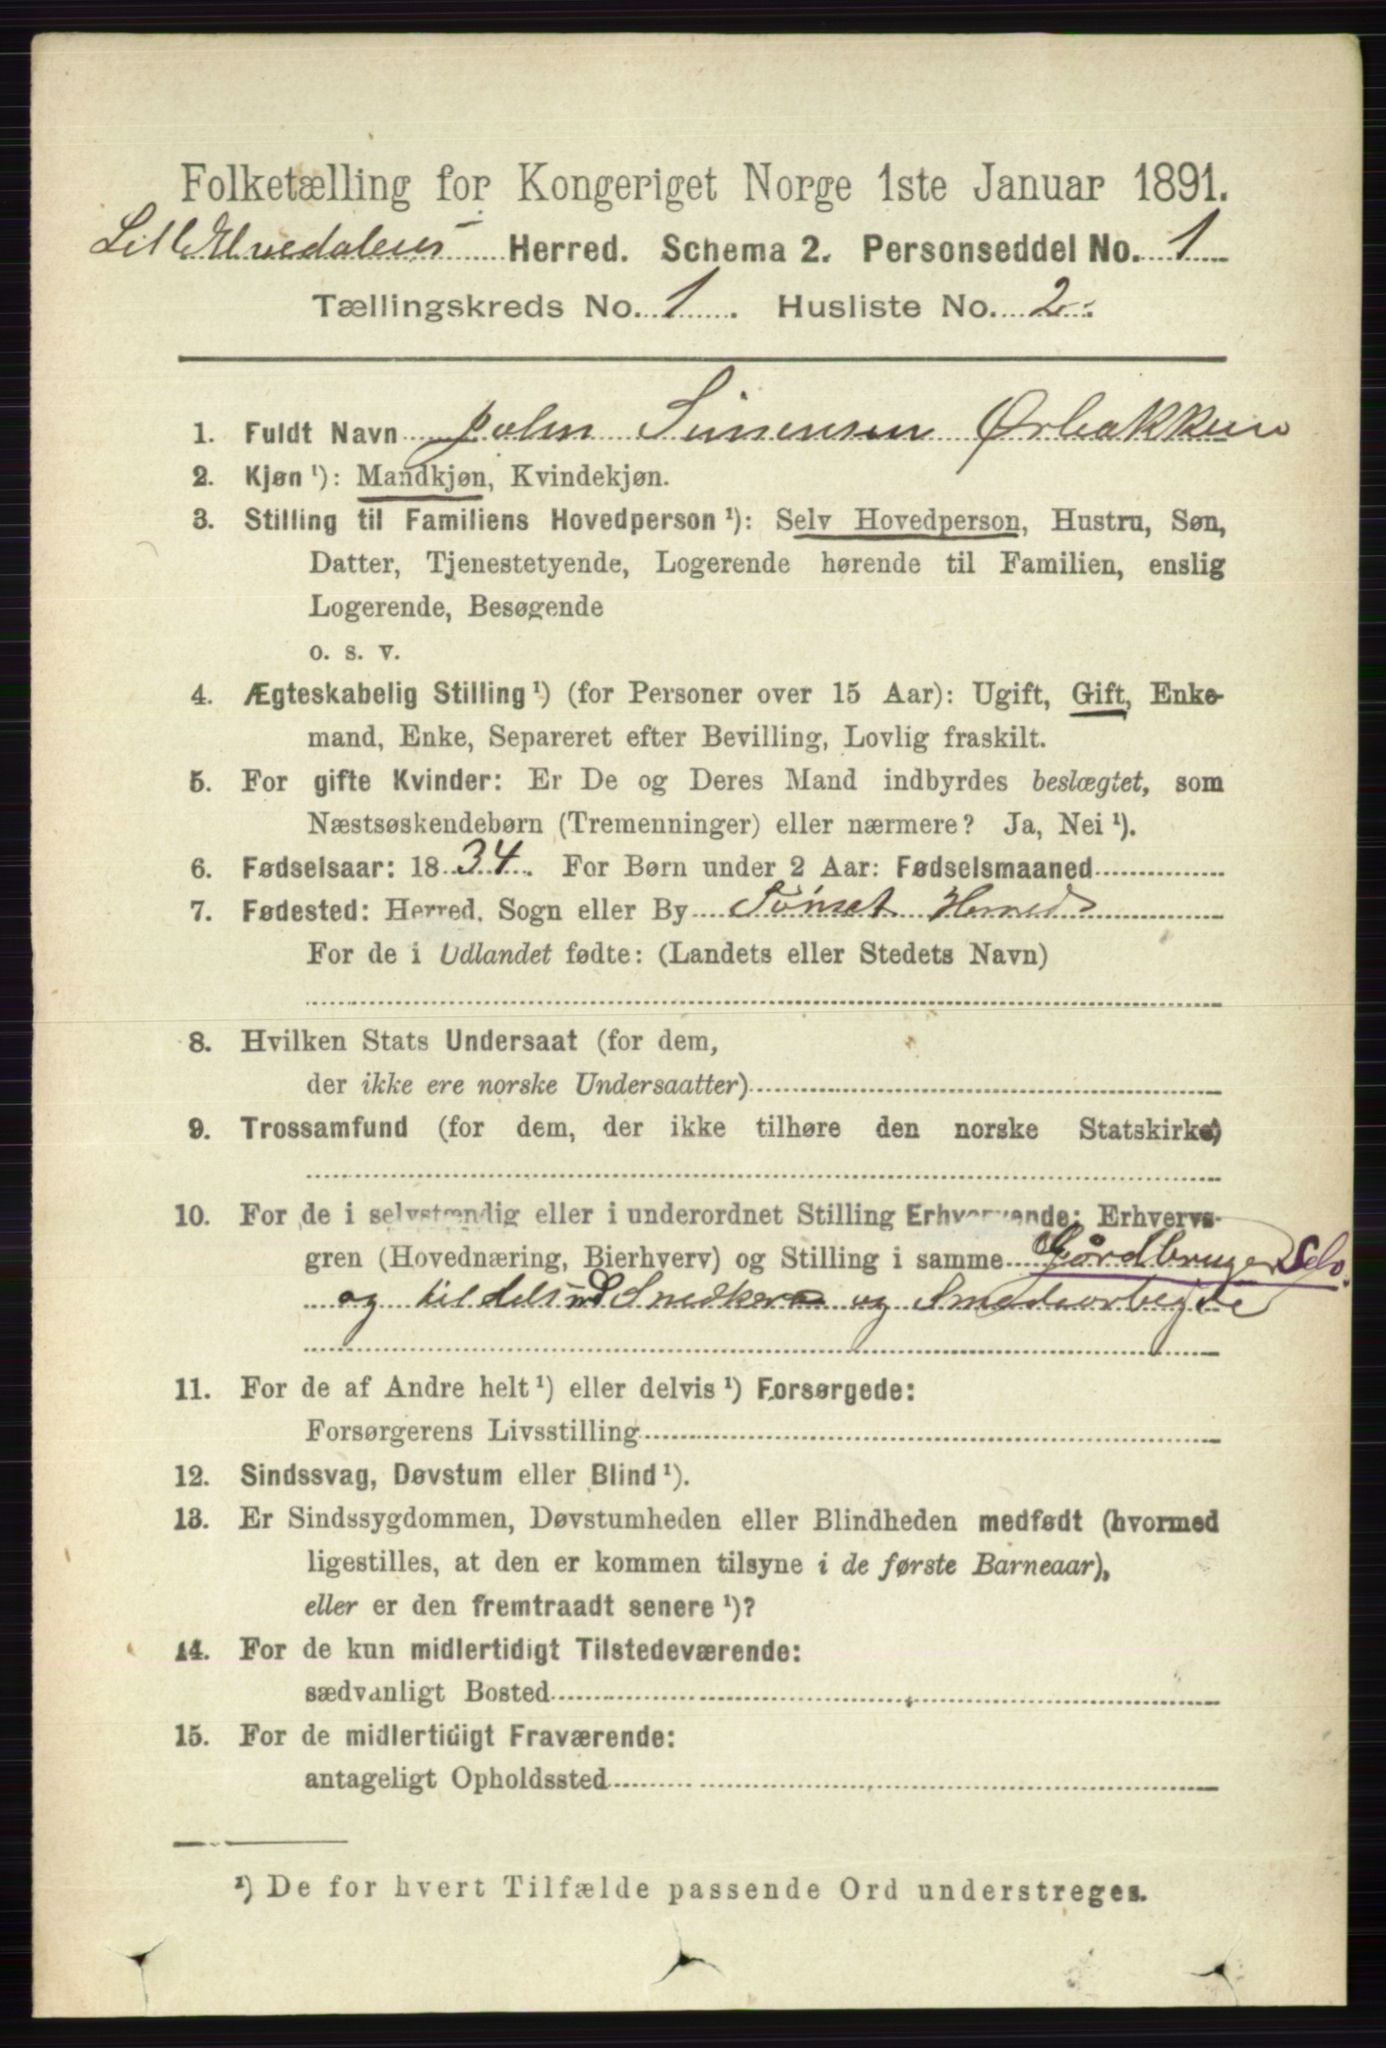 Folketælling for Kongeriget Norge 1ste Januar 1891.
Lille Elvedalens Herred. Schema 2. Personseddel No. 1
Tællingskreds No. 1. Husliste No. 2.
1. Fuldt Navn John Simensen Ørbakken
2. Kjøn ¹): Mandkjøn, Kvindekjøn.
3. Stilling til Familiens Hovedperson ¹): Selv Hovedperson, Hustru, Søn,
Datter, Tjenestetyende, Logerende hørende til Familien, enslig
Logerende, Besøgende
o. s. v.
4. Ægteskabelig Stilling ¹) (for Personer over 15 Aar): Ugift, Gift, Enke-
mand, Enke, Separeret efter Bevilling, Lovlig fraskilt.
5. For gifte Kvinder: Er De og Deres Mand indbyrdes beslægtet, som
Næstsøskendebørn (Tremenninger) eller nærmere? Ja, Nei ¹).
6. Fødselsaar: 1834. For Børn under 2 Aar: Fødselsmaaned
7. Fødested: Herred, Sogn eller By Tönset Herred
For de i Udlandet fødte: (Landets eller Stedets Navn)
8. Hvilken Stats Undersaat (for dem,
der ikke ere norske Undersaatter)
9. Trossamfund (for dem, der ikke tilhøre den norske Statskirke)
10. For de i selvstændig eller i underordnet Stilling Erhvervende: Erhvervs-
gren (Hovednæring, Bierhverv) og Stilling i samme Gårdbruger Selv.
og tildels Snedker og Smedearbejde
11. For de af Andre helt ¹) eller delvis ¹) Forsørgede:
Forsørgerens Livsstilling
12. Sindssvag, Døvstum eller Blind ¹).
13. Er Sindssygdommen, Døvstumheden eller Blindheden medfødt (hvormed
ligestilles, at den er kommen tilsyne i de første Barneaar),
eller er den fremtraadt senere ¹)?
14. For de kun midlertidigt Tilstedeværende:
sædvanligt Bosted
15. For de midlertidigt Fraværende:
antageligt Opholdssted
¹) De for hvert Tilfælde passende Ord understreges.